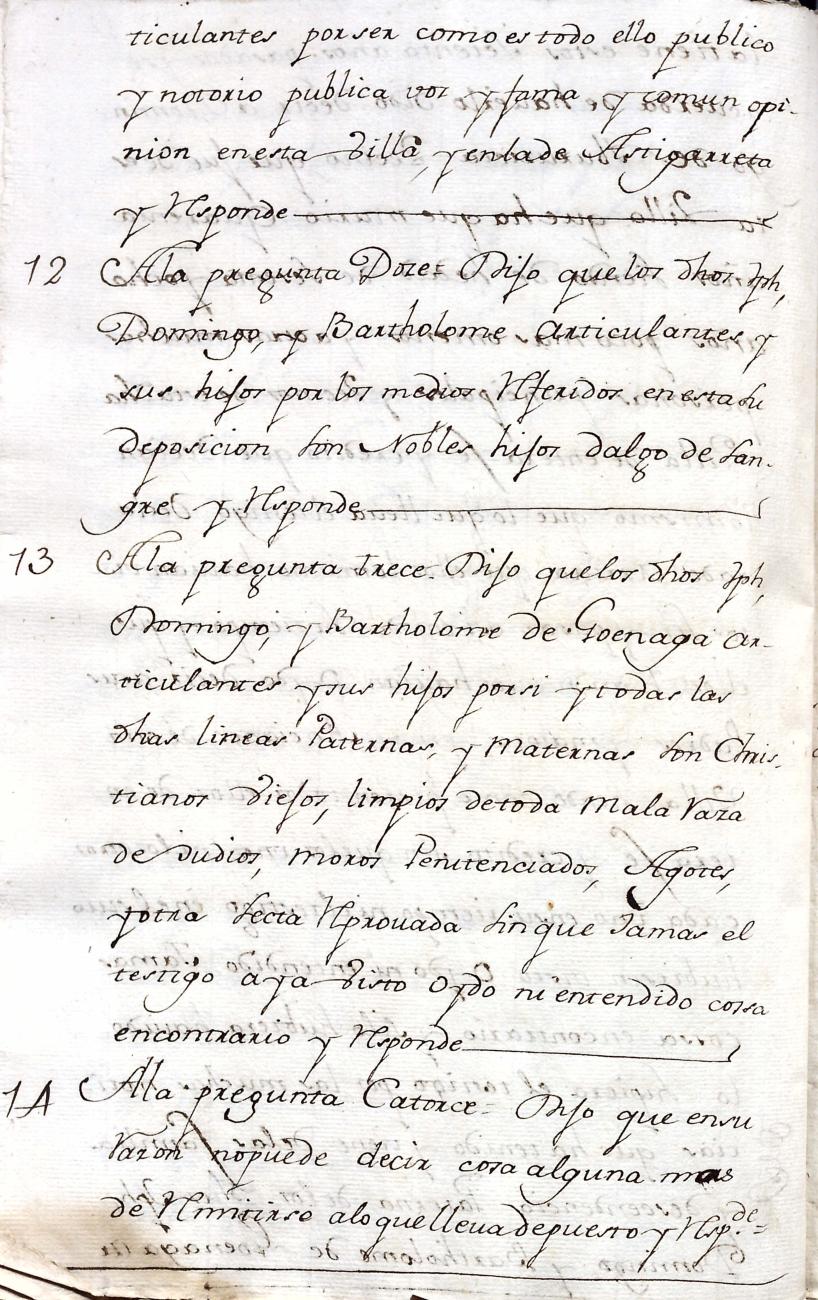 ticulantes por ser como es todo ello publico
y notorio publica voz y fama y comun opi-
nion en esta Villa, y en la de Astigarreta
y Responde
12 A la pregunta Doze= Dijo que los dhos Jph,
Domingo, y Bartholome Articulantes y
sus hijos por los medios Referidos en esta su
deposicion son Nobles hijos dalgo de san-
gre y Responde
13 A la pregunta trece. Dijo que los dhos Jph,
Domingo, y Bartholome de Goenaga ar-
ticulantes y sus hijos por si y todas las
dhas lineas Paternas, y Maternas son Chris-
tianos Viejos, limpios de toda Mala Raza
de Judios, Moros Penitenciados, Agotes,
y otra secta Reprovada sin que Jamas el
testigo aya Visto Oydo ni entendido cossa
en contrario y Responde
14 A la pregunta Catorce= Dijo que en su
Razon no puede decir cosa alguna mas
de Remitirse a lo que lleva depuesto y Resp.de=